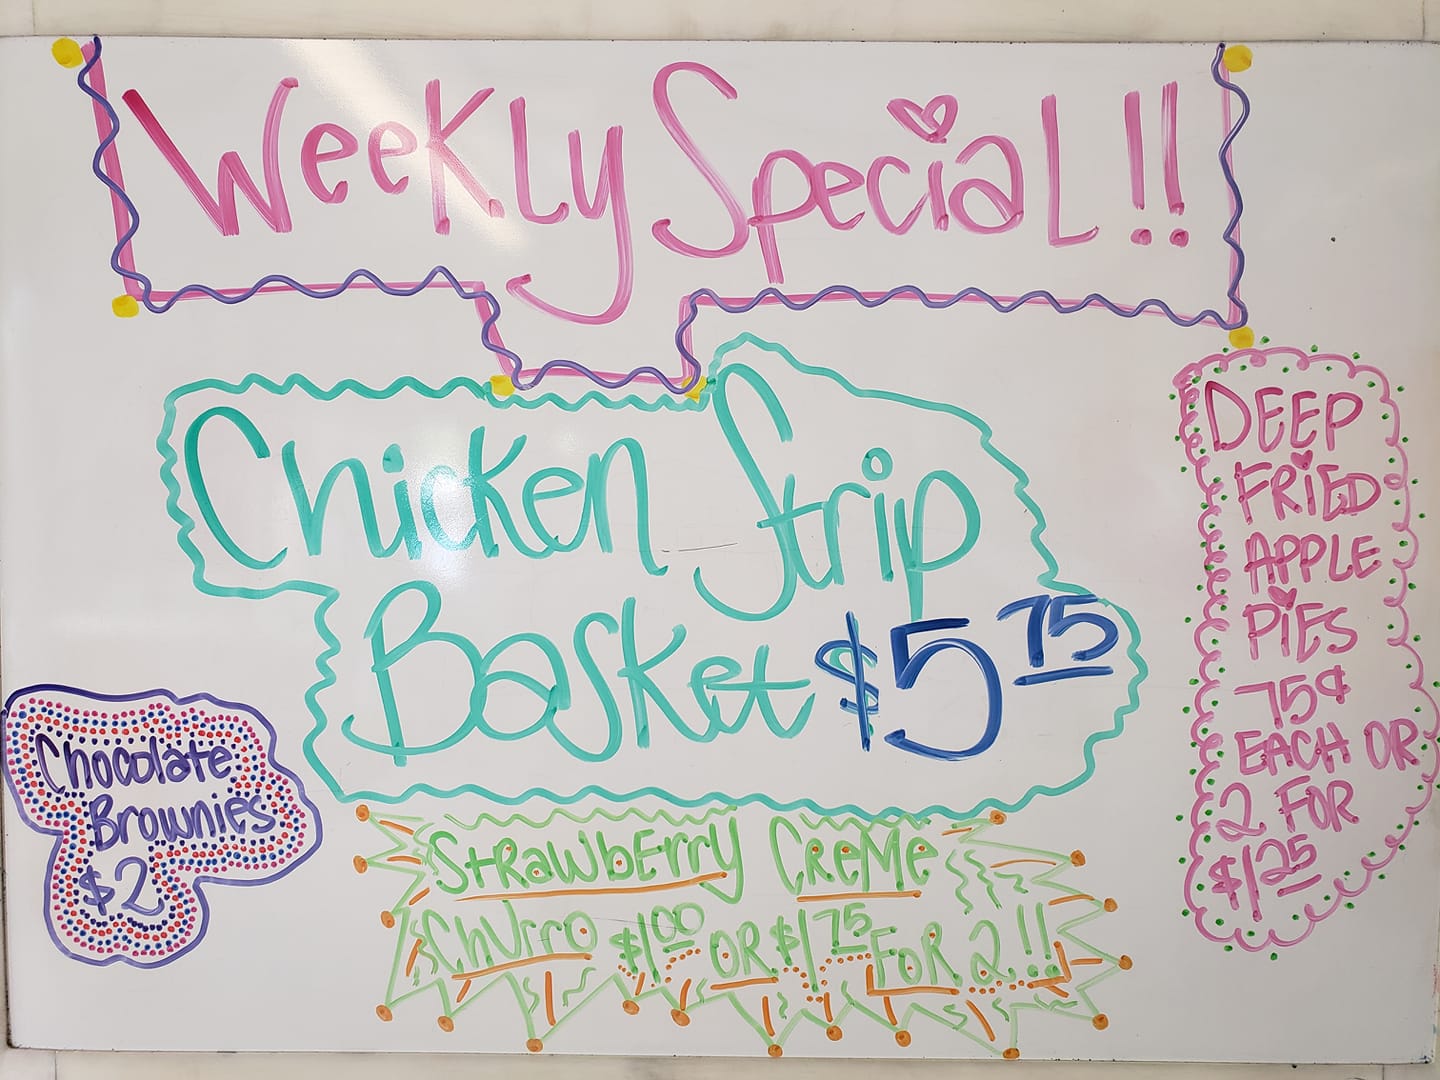 Weekly Special!!
Chicken Strip
Basket $5 75
DEEP
FRiED
APPLE
PiES
75¢
EACH OR
2 FOR
$1 25
Chocolate
Brownies
$2
StRawbErry CReMe
Churro $1 00 OR $1 75 FoR 2!!